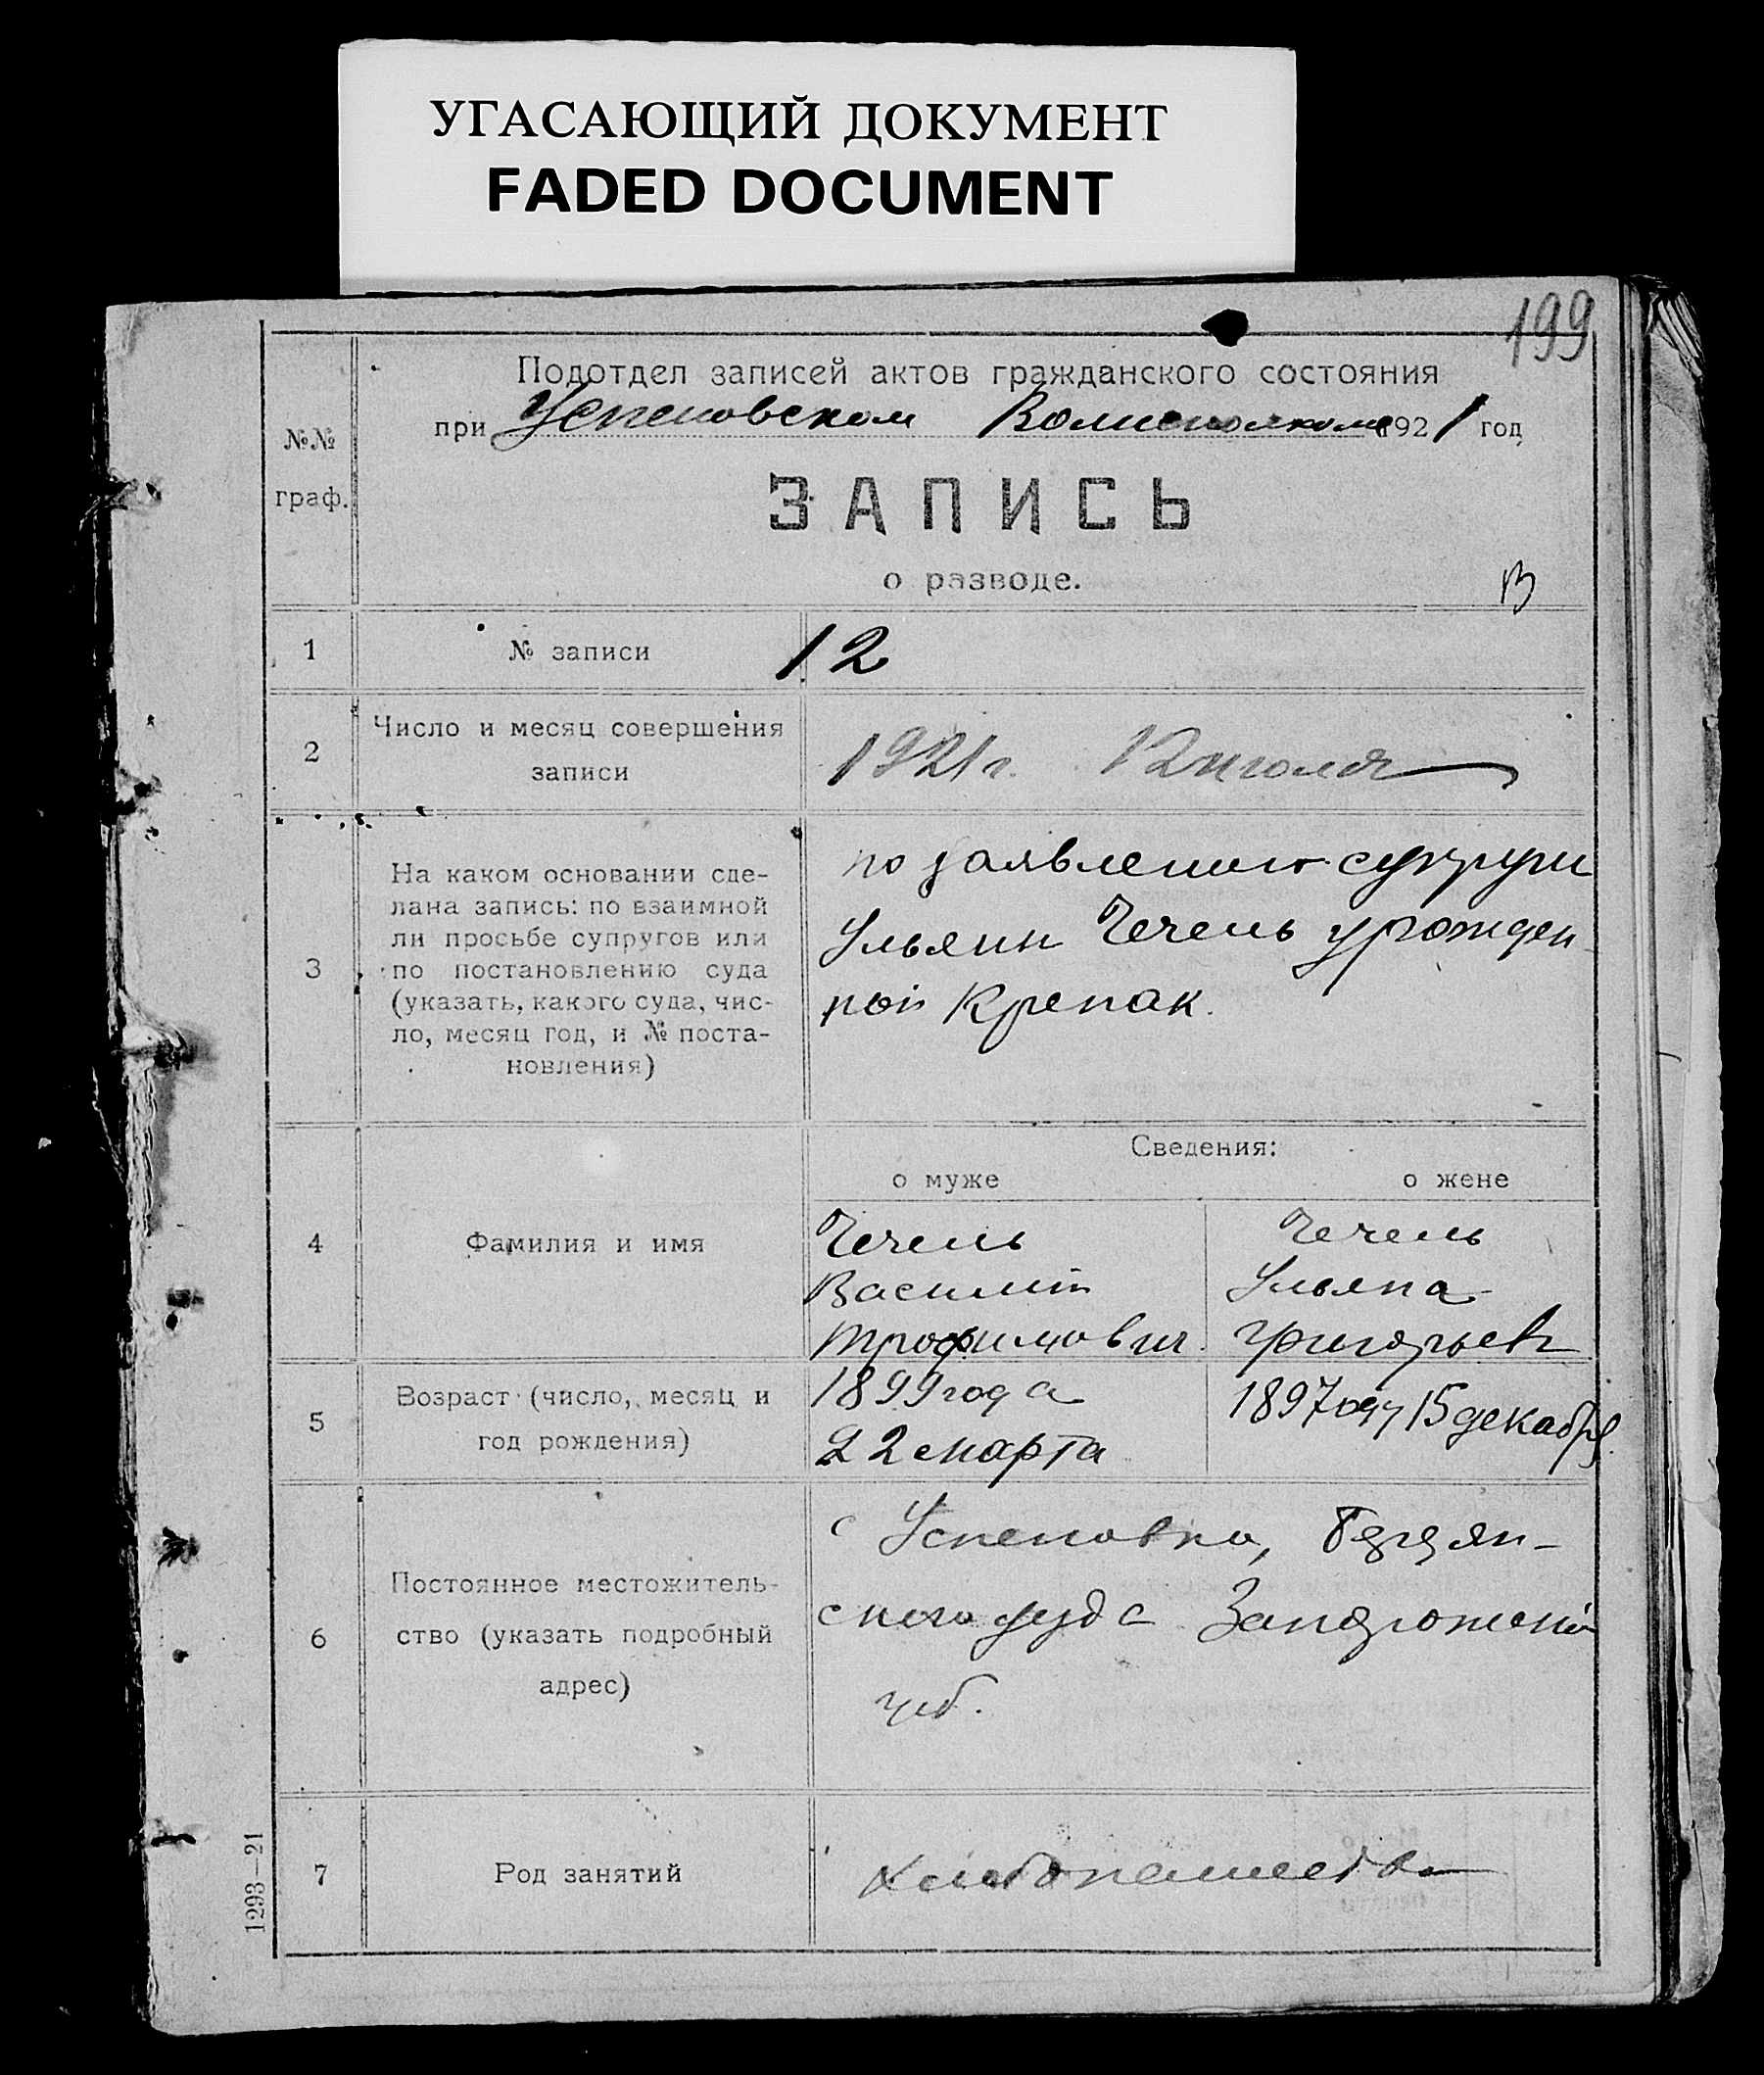 УГАСАЮЩИЙ ДОКУМЕНТ
FADED DOCUMENT
199
Подотдел записей актов гражданского состояния
при Успеновском Волисполкоме 1921 год
№№
граф.
ЗАПИСЬ
о разводе.
В
1 № записи 12
2 Число и месяц совершения
записи
1921 г. 12 июля
3 На каком основании сде-
лана запись: по взаимной
ли просьбе супругов или
по постановлению суда
(указать, какого суда, чис-
ло, месяц год, и № поста-
новления)
по заявлению супруги
Ульяни Чечель урожден-
ной Крепак.
Сведения:
о муже о жене
4 Фамилия и имя
Чечель
Василий
Трофимович
Чечель
Ульяна
Григорьев
5 Возраст (число, месяц и
год рождения)
1899 года
22 марта
1897 году 15 декабря
6 Постоянное местожитель-
ство (указать подробный
адрес)
с Успеновка, Бердян-
ского уезда Запорожской
губ.
7 Род занятий
Хлебопашество
1293—21